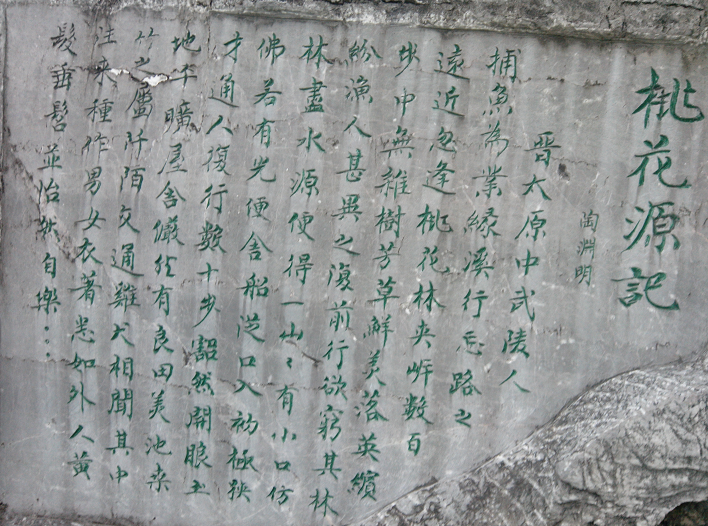 桃花源記
陶淵明
晉太原中武陵人
捕魚為業緣溪行忘路之
遠近忽逢桃花林夾岸数百
步中無雜樹芳草鮮美落英繽
紛漁人甚異之復前行欲窮其林
林盡水源便得一山々有小口仿
佛若有光便舍船從口入初極狹
才通人復行数十步豁然開眼土
地平曠屋舍儼然有良田美池桑
竹之屬阡陌交通雞犬相聞其中
往來種作男女衣著悉如外人黃
髮垂髫並怡然自樂…